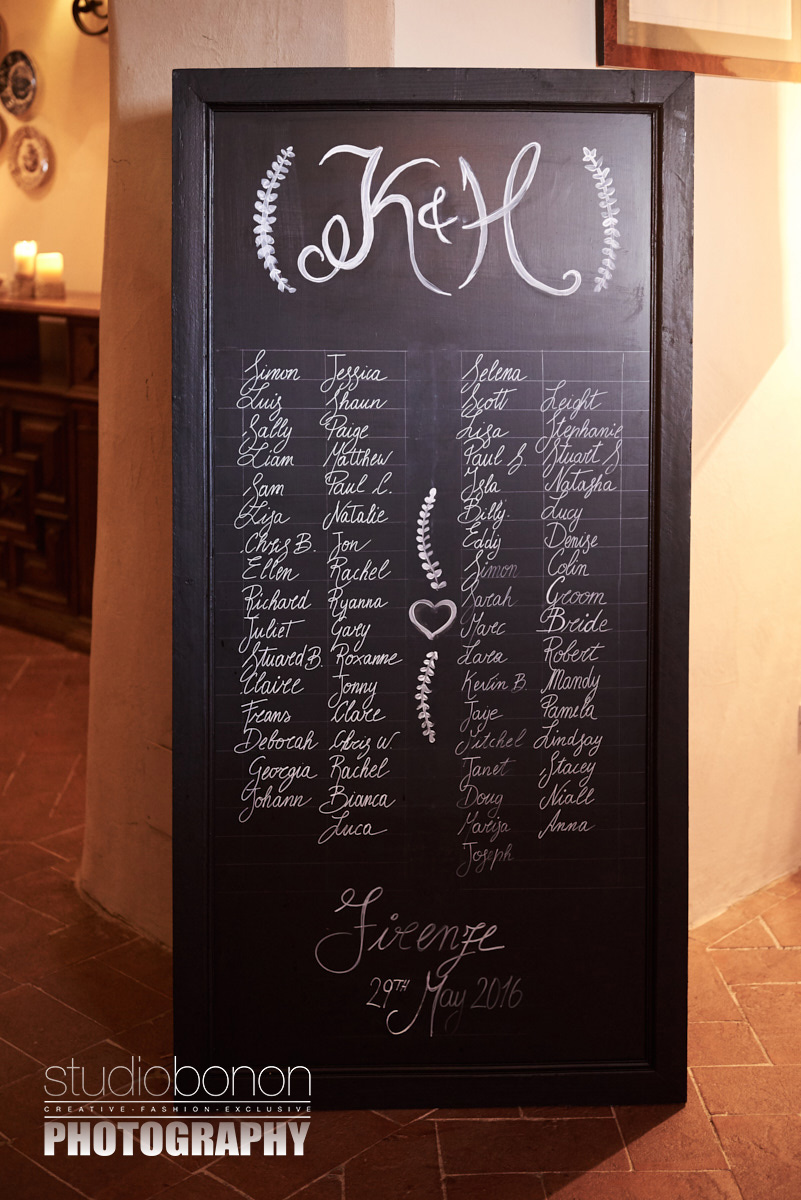 K & H
Simon
Luis
Sally
Liam
Sam
Lisa
Chris B.
Ellen
Richard
Juliet
Stuard B.
Claire
Frans
Deborah
Georgia
Johann
Jessica
Shaun
Paige
Matthew
Paul L.
Natalie
Jon
Rachel
Ryanna
Gary
Roxanne
Jonny
Clare
Chris W.
Rachel
Bianca
Luca
Selena
Scott
Lisa
Paul S.
Isla
Billy
Eddy
Simon
Sarah
Marc
Lara
Kerlin B.
Jaye
Janet
Doug
Marija
Joseph
Leight
Stephanie
Stuart S
Natasha
Lucy
Denise
Colin
Groom
Bride
Robert
Mandy
Pamela
Lindsay
Stacey
Niall
Anna
Firenze
29TH May 2016
studiobonon
CREATIVE-FASHION-EXCLUSIVE
PHOTOGRAPHY